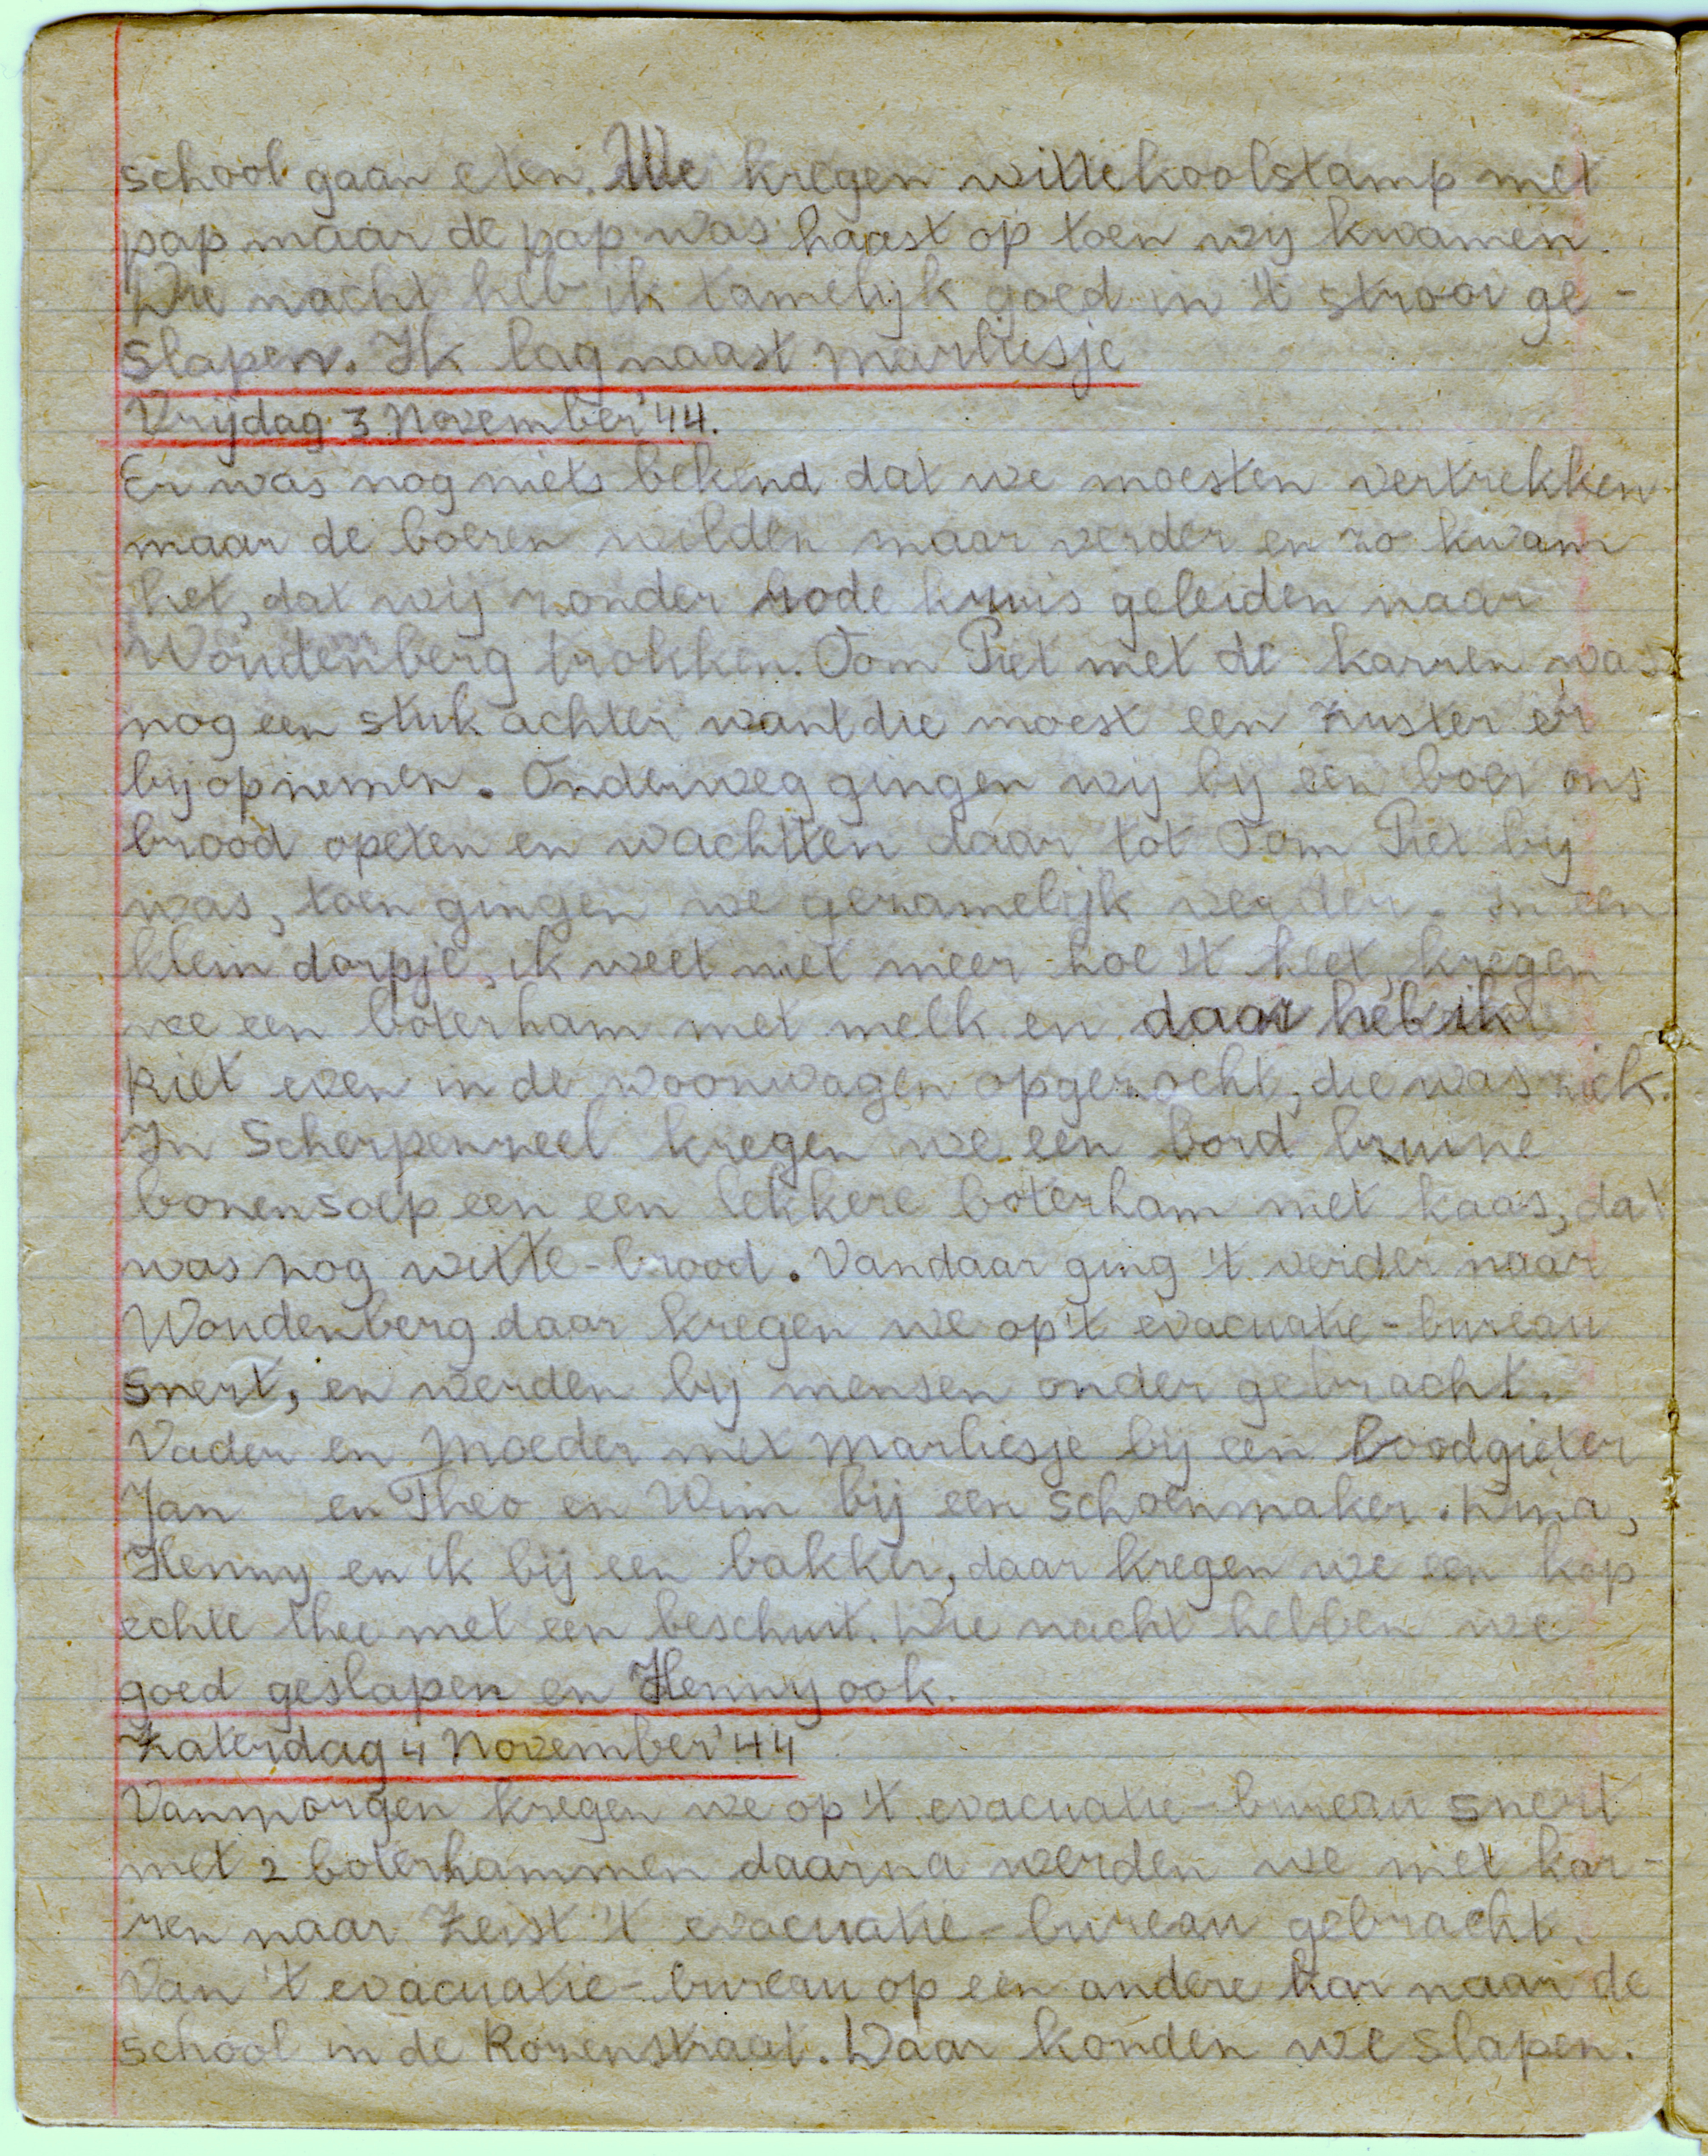 school gaan eten. We kregen wittekoolstamp met
pap maar de pap was haast op toen wij kwamen.
Die nacht heb ik tamelijk goed in 't stroo ge-
slapen. Ik lag naast Marliesje
Vrijdag 3 November '44.
Er was nog niets bekend dat we moesten vertrekken
maar de boeren wilden maar verder en zo kwam
het, dat wij zonder rode kruis geleiden naar
Woudenberg trokken. Oom Piet met de karren was
nog een stuk achter want die moest een zuster er
bij opnemen. Onderweg gingen wij bij een boer ons
brood opeten en wachtten daar tot Oom Piet bij
was, toen gingen we gezamelijk verder. In een
klein dorpje, ik weet niet meer hoe 't heet, kregen
we een boterham met melk en daar heb ik
Riet even in de woonwagen opgezocht, die was ziek.
In Scherpenzeel kregen we een bord bruine
bonensoep een een lekkere boterham met kaas, dat
was nog witte-brood. Vandaar ging 't verder naar
Woudenberg daar kregen we op 't evacuatie-bureau
snert, en werden bij mensen onder gebracht.
Vader en Moeder met Marliesje bij een loodgieter
Jan en Theo en Wim bij een schoenmaker.
Henny en ik bij een bakker, daar kregen we een kop
echte thee met een beschuit. Die nacht hebben we
goed geslapen en Henny ook.
Zaterdag 4 November '44
Vanmorgen kregen we op 't evacuatie-bureau snert
met 2 boterhammen daarna werden we met kar-
ren naar Zeist 't evacuatie-bureau gebracht.
Van 't evacuatie-bureau op een andere kar naar de
school in de Rozenstraat. Daar konden we slapen.